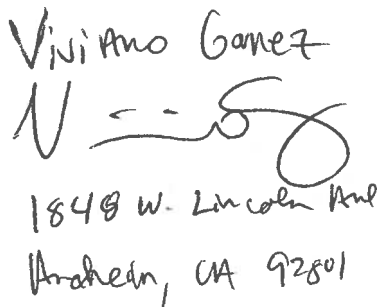 Viviano Gamez
1848 W. Lincoln Ave
Anaheim, CA 92801